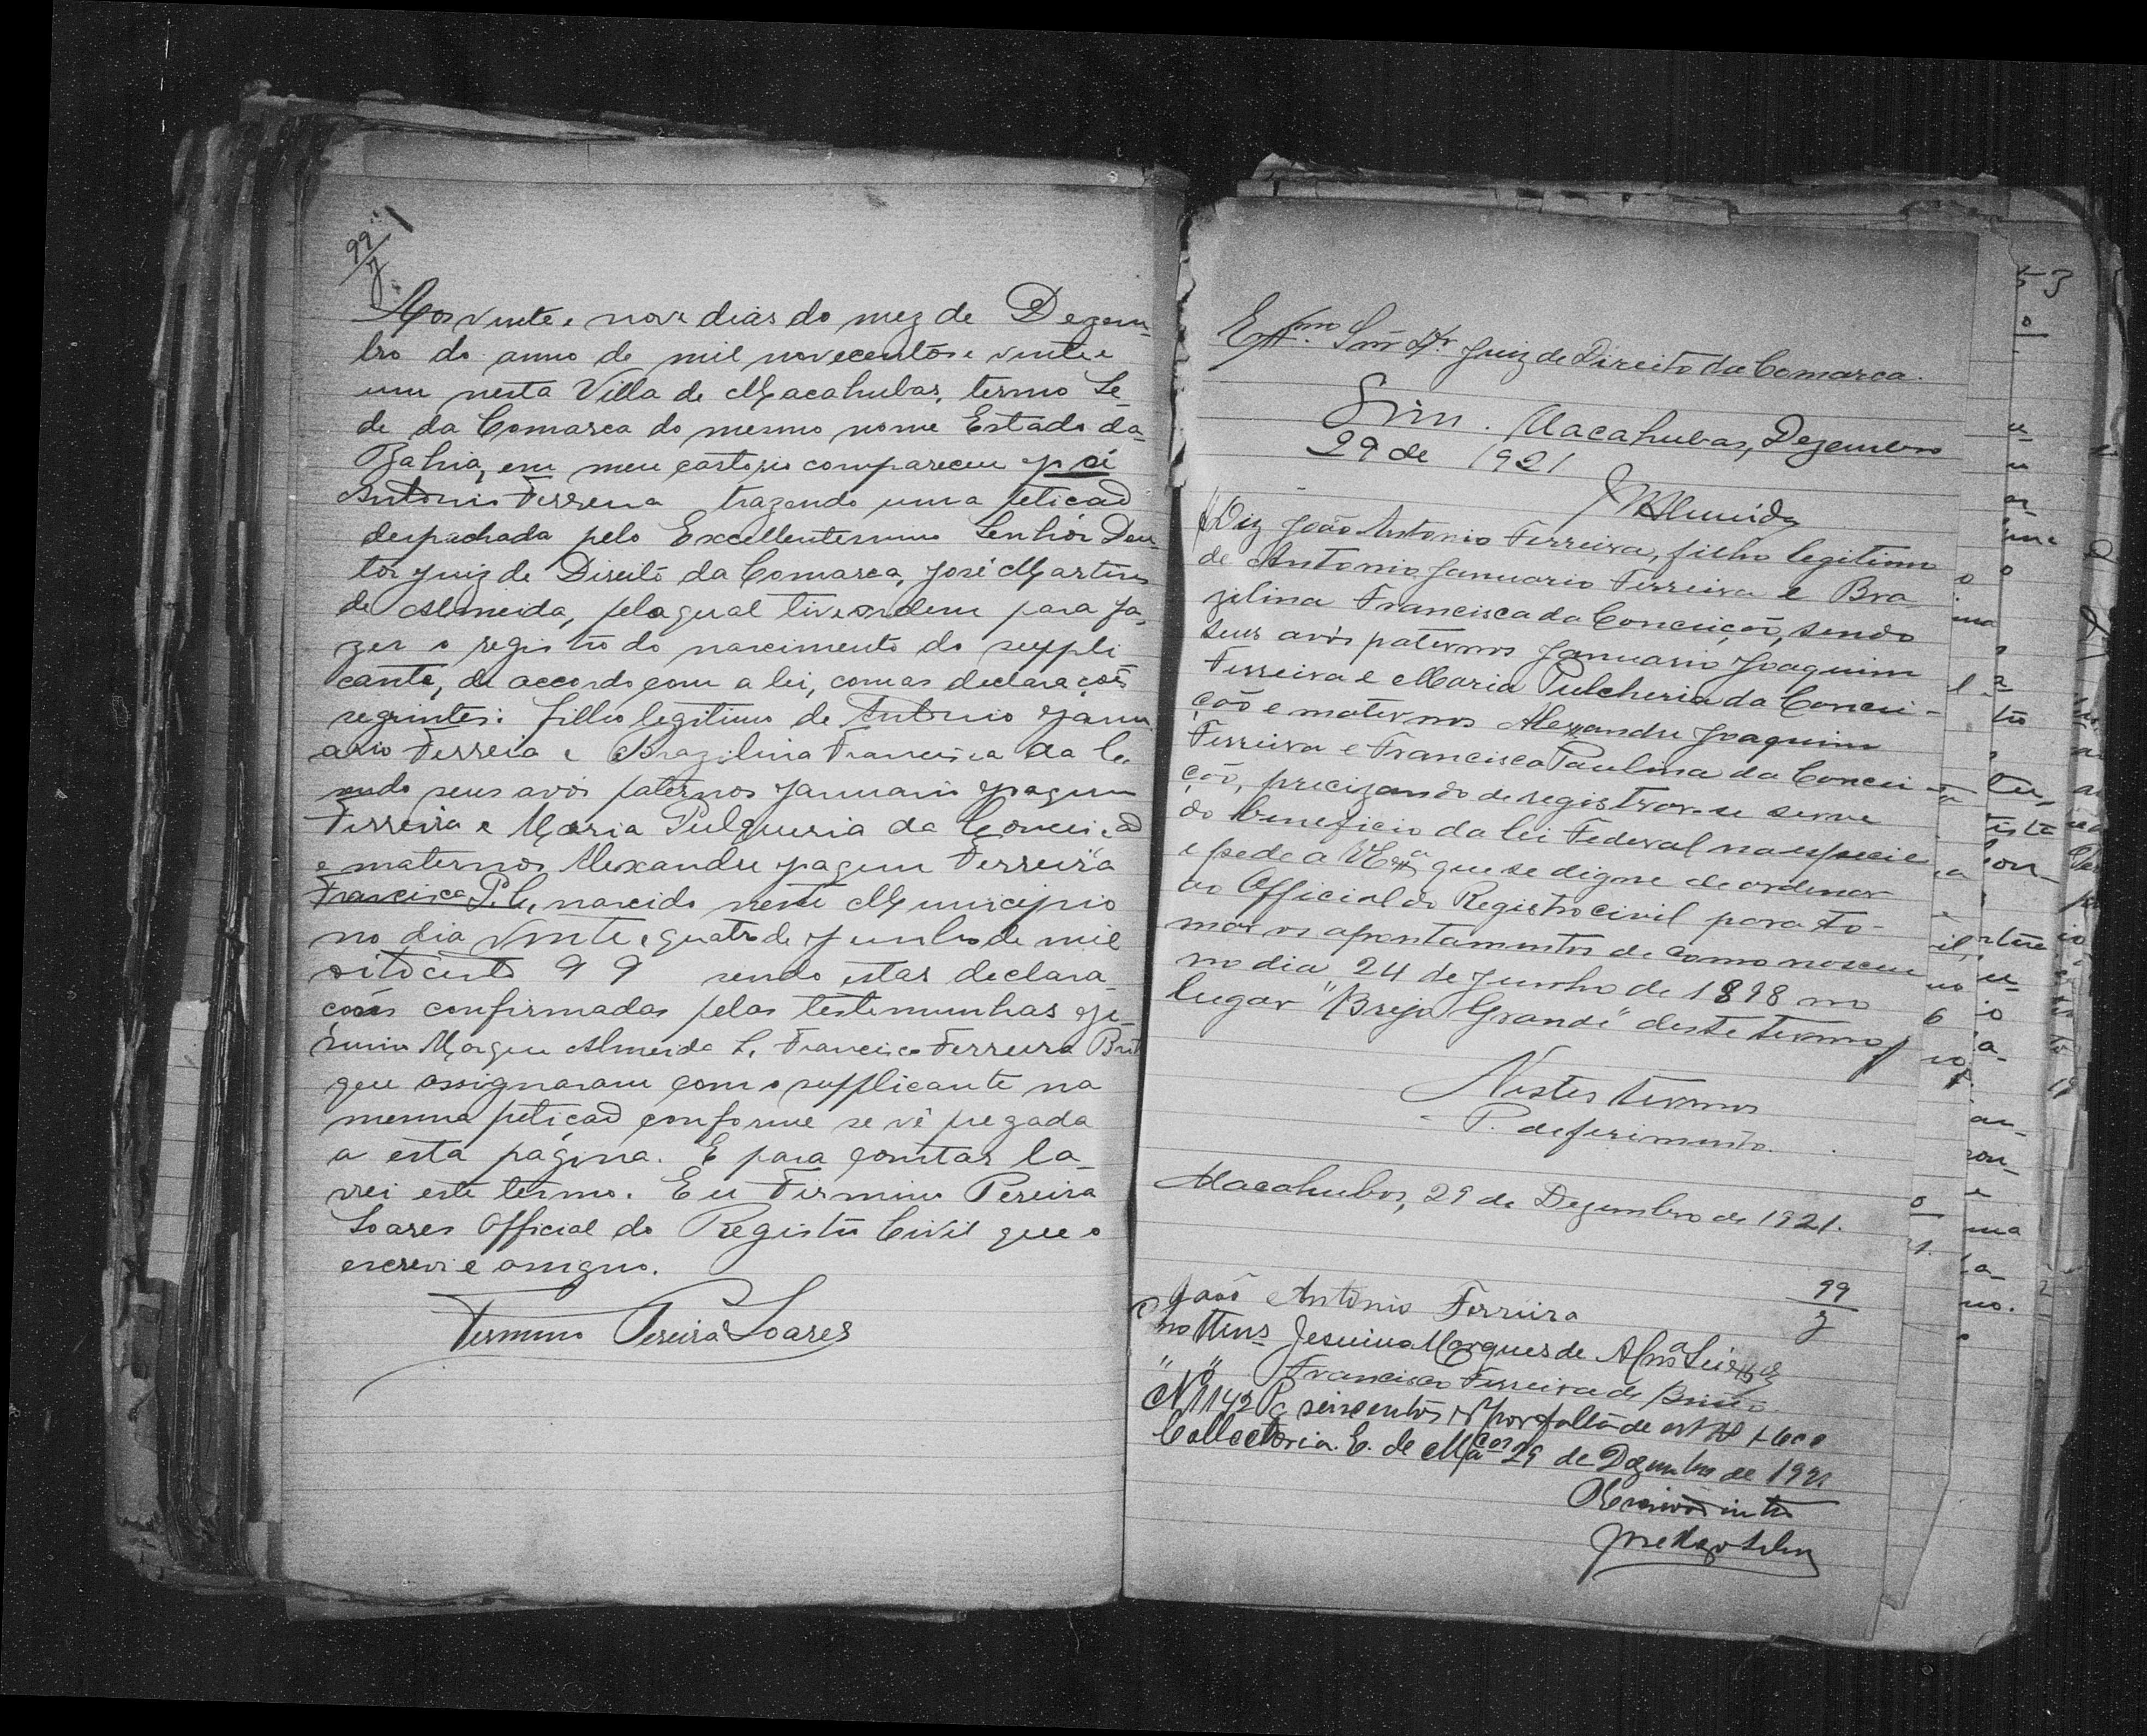 99
J
Aos vinte e nove dias do mez de Dezem-
bro do anno de mil novecentos e vinte e
um nesta Villa de Macahubas, termo Se-
de da Comarca do mesmo nome Estado da
Bahia, em meu cartorio compareceu
Antonio Ferreira trazendo uma peticaõ
despachada pelo Excellentessimo Senhor Dou-
tor Juiz de Direito da Comarca, José Martins
de Almeida, pela qual tive ordem para fa-
zer o registro do nascimento do suppli
cante, de accordo com a lei, com as declaraçoẽs
seguintes: filho legitimo de Antonio Janu
ario Ferreia e Brazilina Francisca da C.
sendo seus avós paternos Januario Joaquim
Ferreira e Maria Pulqueria da Conceiçaõ
e maternos Alexandre Joaquim Ferreira
Francisca P. C, nascido neste Municipio
no dia vinte e quatro de Junho de mil
oitocento 99 sendo estas declara-
coẽs confirmadas pelas testemunhas Je-
suino Marques Almeida L, Francisco Ferreira Brit
que assignaram com o supplicante na
mesma peticaõ conforme se vê pregada
a esta página. E para constar la-
vrei este termo. Eu Firmino Pereira
Soares Official do Registro Civil que o
escrevi e assigno.
Firmino Pereira Soares
Exmo. Snr. Dr. Juiz de Direito da Comarca.
Sim. Macahubas, Dezembro
29 de 1921
JMAlmeida
Diz João Antonio Ferreira, filho legitimo
de Antonio Januario Ferreira e Bra
zilina Francisca da Conceição, sendo
seus avós paternos Januario Joaquim
Ferreira e Maria Pulcheria da Concei-
ção e maternos Alexandre Joaquim
Ferreira e Francisca Paulina da Concei-
ção, precizando de registrar-se serve
do beneficio da lei Federal na especie
e pede a V Exa que se digne de ordenar
ao Official do Registro civil para to-
mar os apontamentos de como nasceu
no dia 24 de Junho de 1898 no
lugar "Brejo Grande" deste termo
Nestes termos
P. deferimento.
Macahubas, 29 de Dezembro de 1921.
João Antonio Ferreira
99
J
Jesuino Marques de Almda
" " Francisco Ferreira de Britto
No 1142 Pg seiscentos por falta de
Collectoria E. de 29 de Dezembro de 1921
O Escrivão